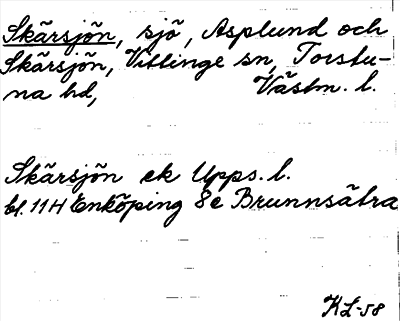 Skärsjön, sjö, Asplund och
Skärsjön, Vittinge sn, Torstu-
na hd, Västm. l.
Skärsjön ek Upps. l.
bl. 11H Enköping 8e Brunnsätra
KL-58